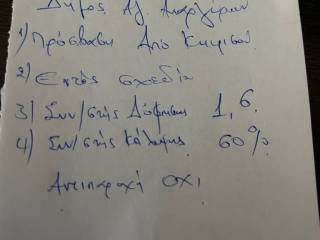 Δήμος Αγ. Αναργύρων
1) Πρόσβαση Από Κηφισού
2) Εντός σχεδίου
3) Συν/στής Δόμησης 1,6.
4) Συν/στής Κάλυψης 60%
Αντιπαροχή ΟΧΙ